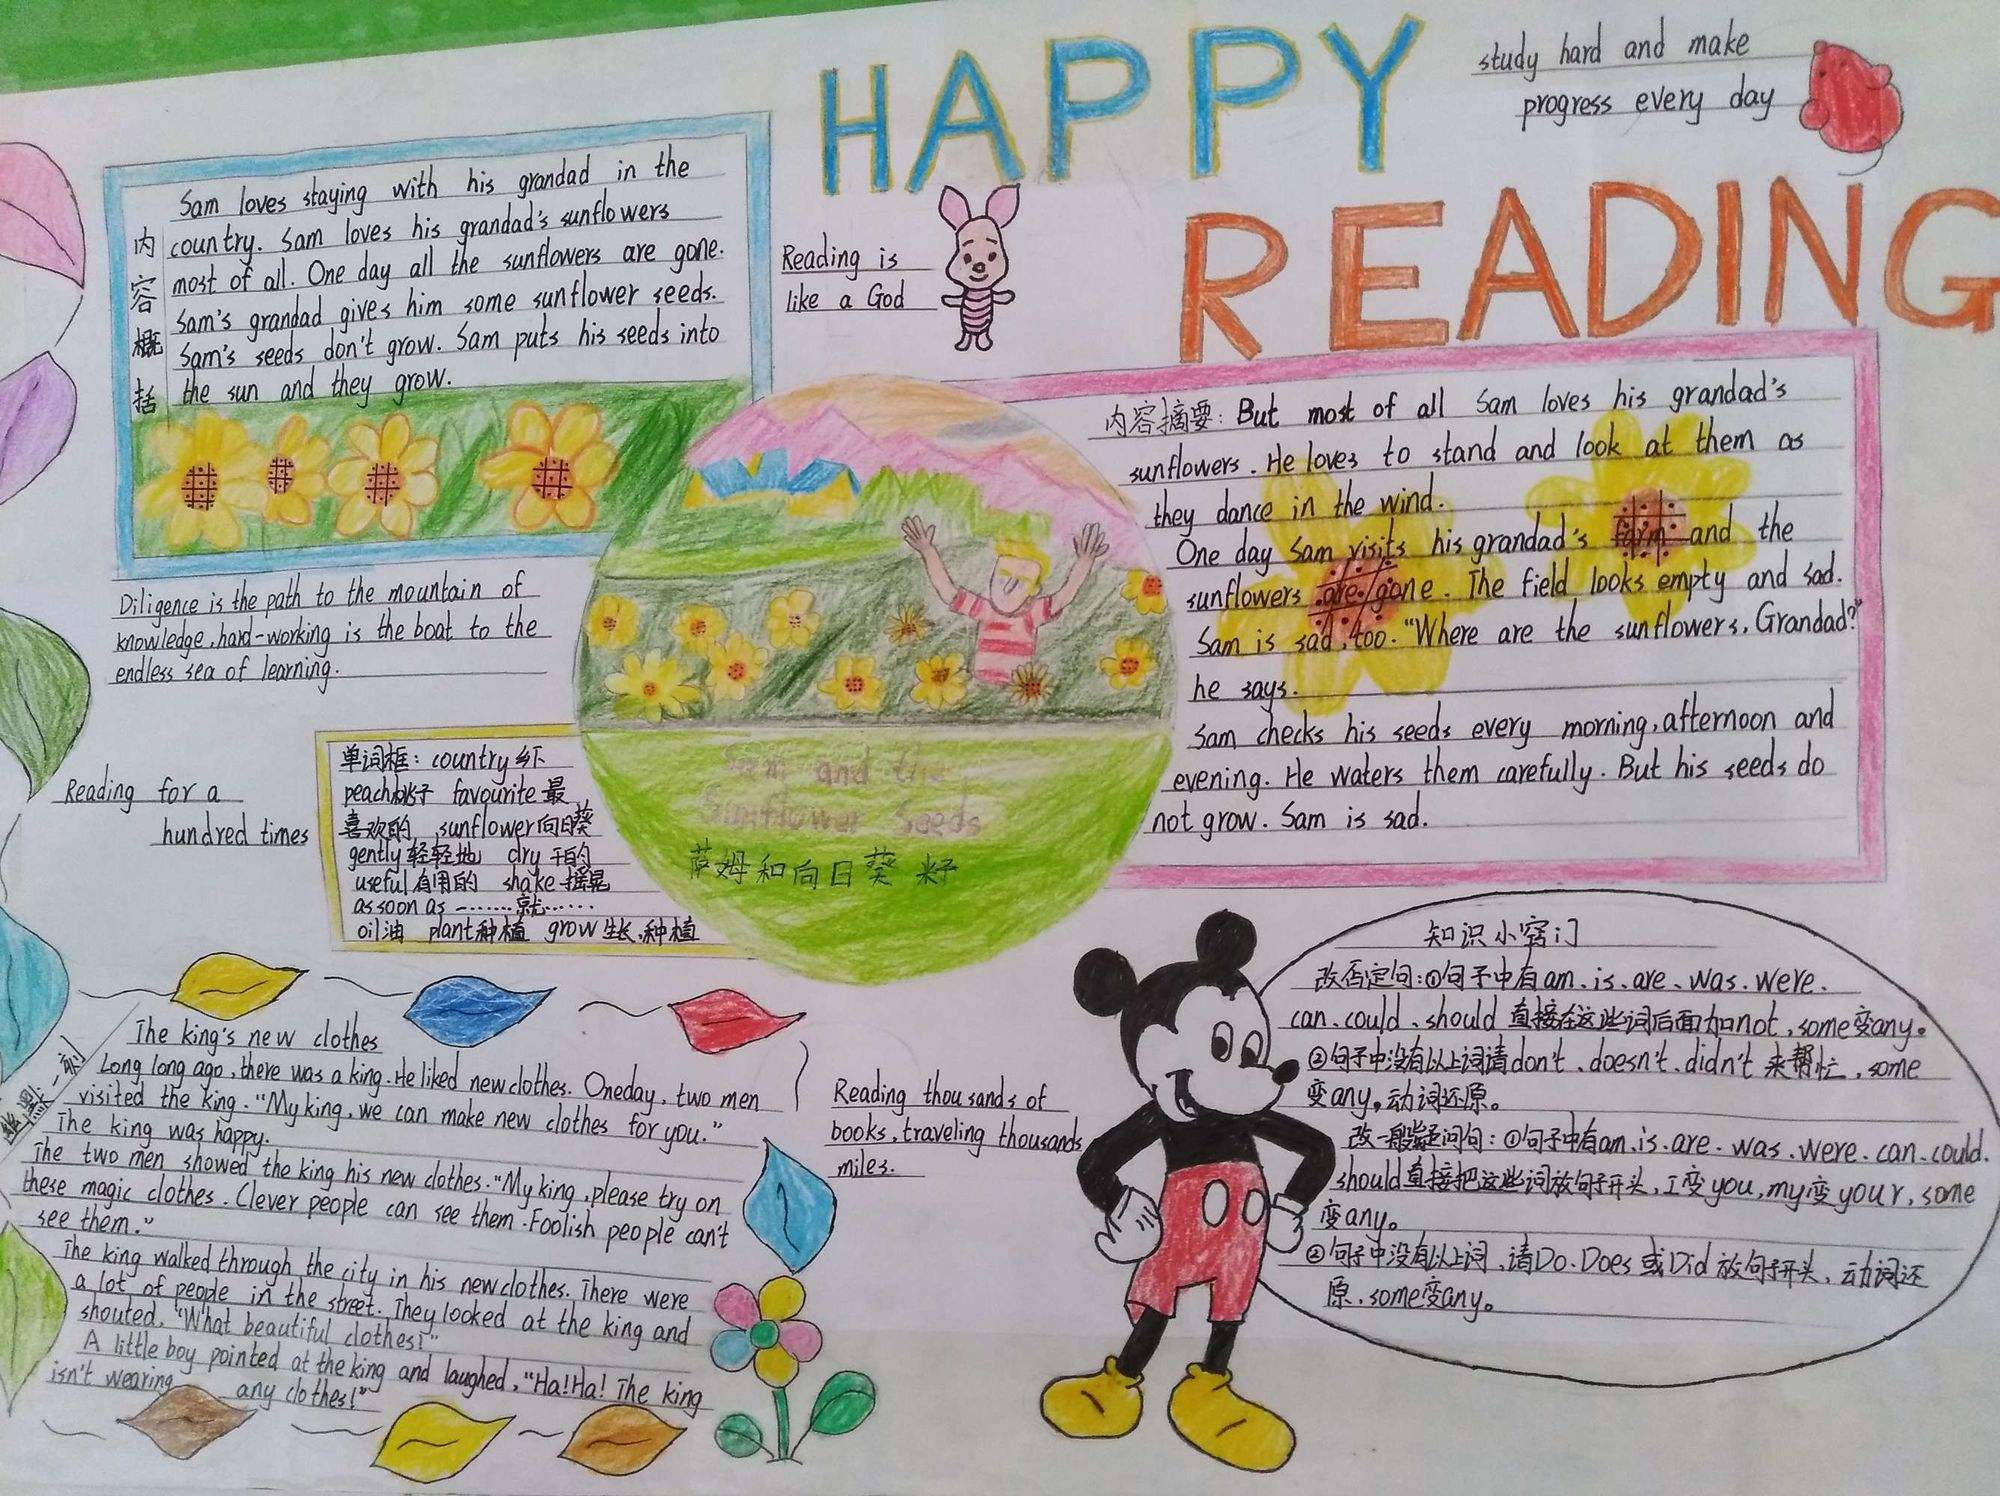 HAPPY
READING
study hard and make
progress every day
内容概括
Sam loves staying with his grandad in the
country. Sam loves his grandad's sunflowers
most of all. One day all the sunflowers are gone.
Sam's grandad gives him some sunflower seeds.
Sam's seeds don't grow. Sam puts his seeds into
the sun and they grow.
Reading is
like a God
内容摘要: But most of all Sam loves his grandad's
sunflowers. He loves to stand and look at them as
they dance in the wind.
One day Sam visits his grandad's farm and the
sunflowers are gone. The field looks empty and sad.
Sam is sad, too. "Where are the sunflowers, Grandad?"
he says.
Sam checks his seeds every morning, afternoon and
evening. He waters them carefully. But his seeds do
not grow. Sam is sad.
Diligence is the path to the mountain of
knowledge, hard-working is the boat to the
endless sea of learning.
Reading for a
hundred times
单词框: country 乡下
peach桃子 favourite 最
喜欢的 , sunflower向日葵
gently轻轻地 dry 干的
useful有用的 shake 摇晃
as soon as -……就……
oil油 plant种植 grow 生长,种植
Sam and the
Sunflower Seeds
萨姆和向日葵籽
幽默一刻
The king's new clothes
Long long ago, there was a king. He liked new clothes. Oneday, two men
visited the king. "My king, we can make new clothes for you."
The king was happy.
The two men showed the king his new clothes. "My king, please try on
these magic clothes. Clever people can see them. Foolish people can't
see them."
The king walked through the city in his new clothes. There were
a lot of people in the street. They looked at the king and
shouted, "What beautiful clothes!"
A little boy pointed at the king and laughed, "Ha! Ha! The king
isn't wearing any clothes!"
Reading thousands of
books, traveling thousands
miles.
知识小窍门
改否定句:①句子中有am、is、are、was、were、
can、could、should 直接在这些词后面加not,some变any。
②句子中没有以上词请don't、doesn't、didn't 来帮忙,some
变any,动词还原。
改一般疑问句:①句子中有am、is、are、was、were、can、could、
should直接把这些词放句子开头,I变you,my变your,some
变any。
②句子中没有以上词,请Do、Does或Did放句子开头,动词还
原,some变any。